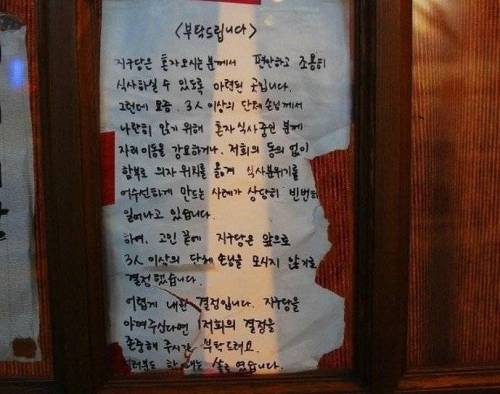 <부탁드립니다>
지구당은 혼자 오시는 분께서 편안하고 조용히
식사하실 수 있도록 마련된 곳입니다.
그런데 요즘, 3人 이상의 단체 손님께서
나란히 앉기 위해 혼자 식사중인 분께
자리이동을 강요하거나, 저희의 동의 없이
함부로 의자 위치를 옮겨 식사분위기를
어수선하게 만드는 사례가 상당히 빈번히
일어나고 있습니다.
하여, 고민 끝에 지구당은 앞으로
3人 이상의 단체 손님을 모시지 않기로
결정했습니다.
어렵게 내린 결정입니다. 지구당을
아껴주신다면 저희의 결정을
존중해 주시길 부탁드려요.